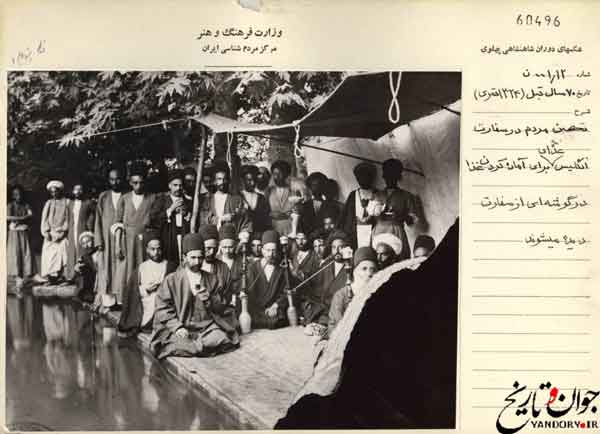 60496
وزارت فرهنگ و هنر
مرکز مردم شناسی ایران
عکسهای دوران شاهنشاهی پهلوی
شماره
تاریخ ۷۰ سال قبل (۱۳۲۴ قمری)
شرح
تحصن مردم در سفارت
انگلیس برای آماده کردن غذا
در گوشه‌ای از سفارت
دیده میشوند
جوان و تاریخ
YANDORY.IR